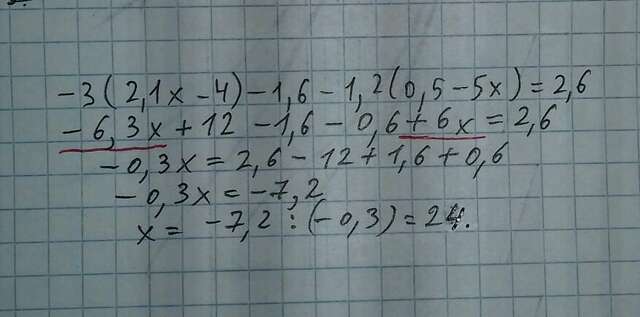 -3(2,1x-4)-1,6-1,2(0,5-5x)=2,6
-6,3x+12-1,6-0,6+6x=2,6
-0,3x=2,6-12+1,6+0,6
-0,3x=-7,2
x=-7,2:(-0,3)=24.